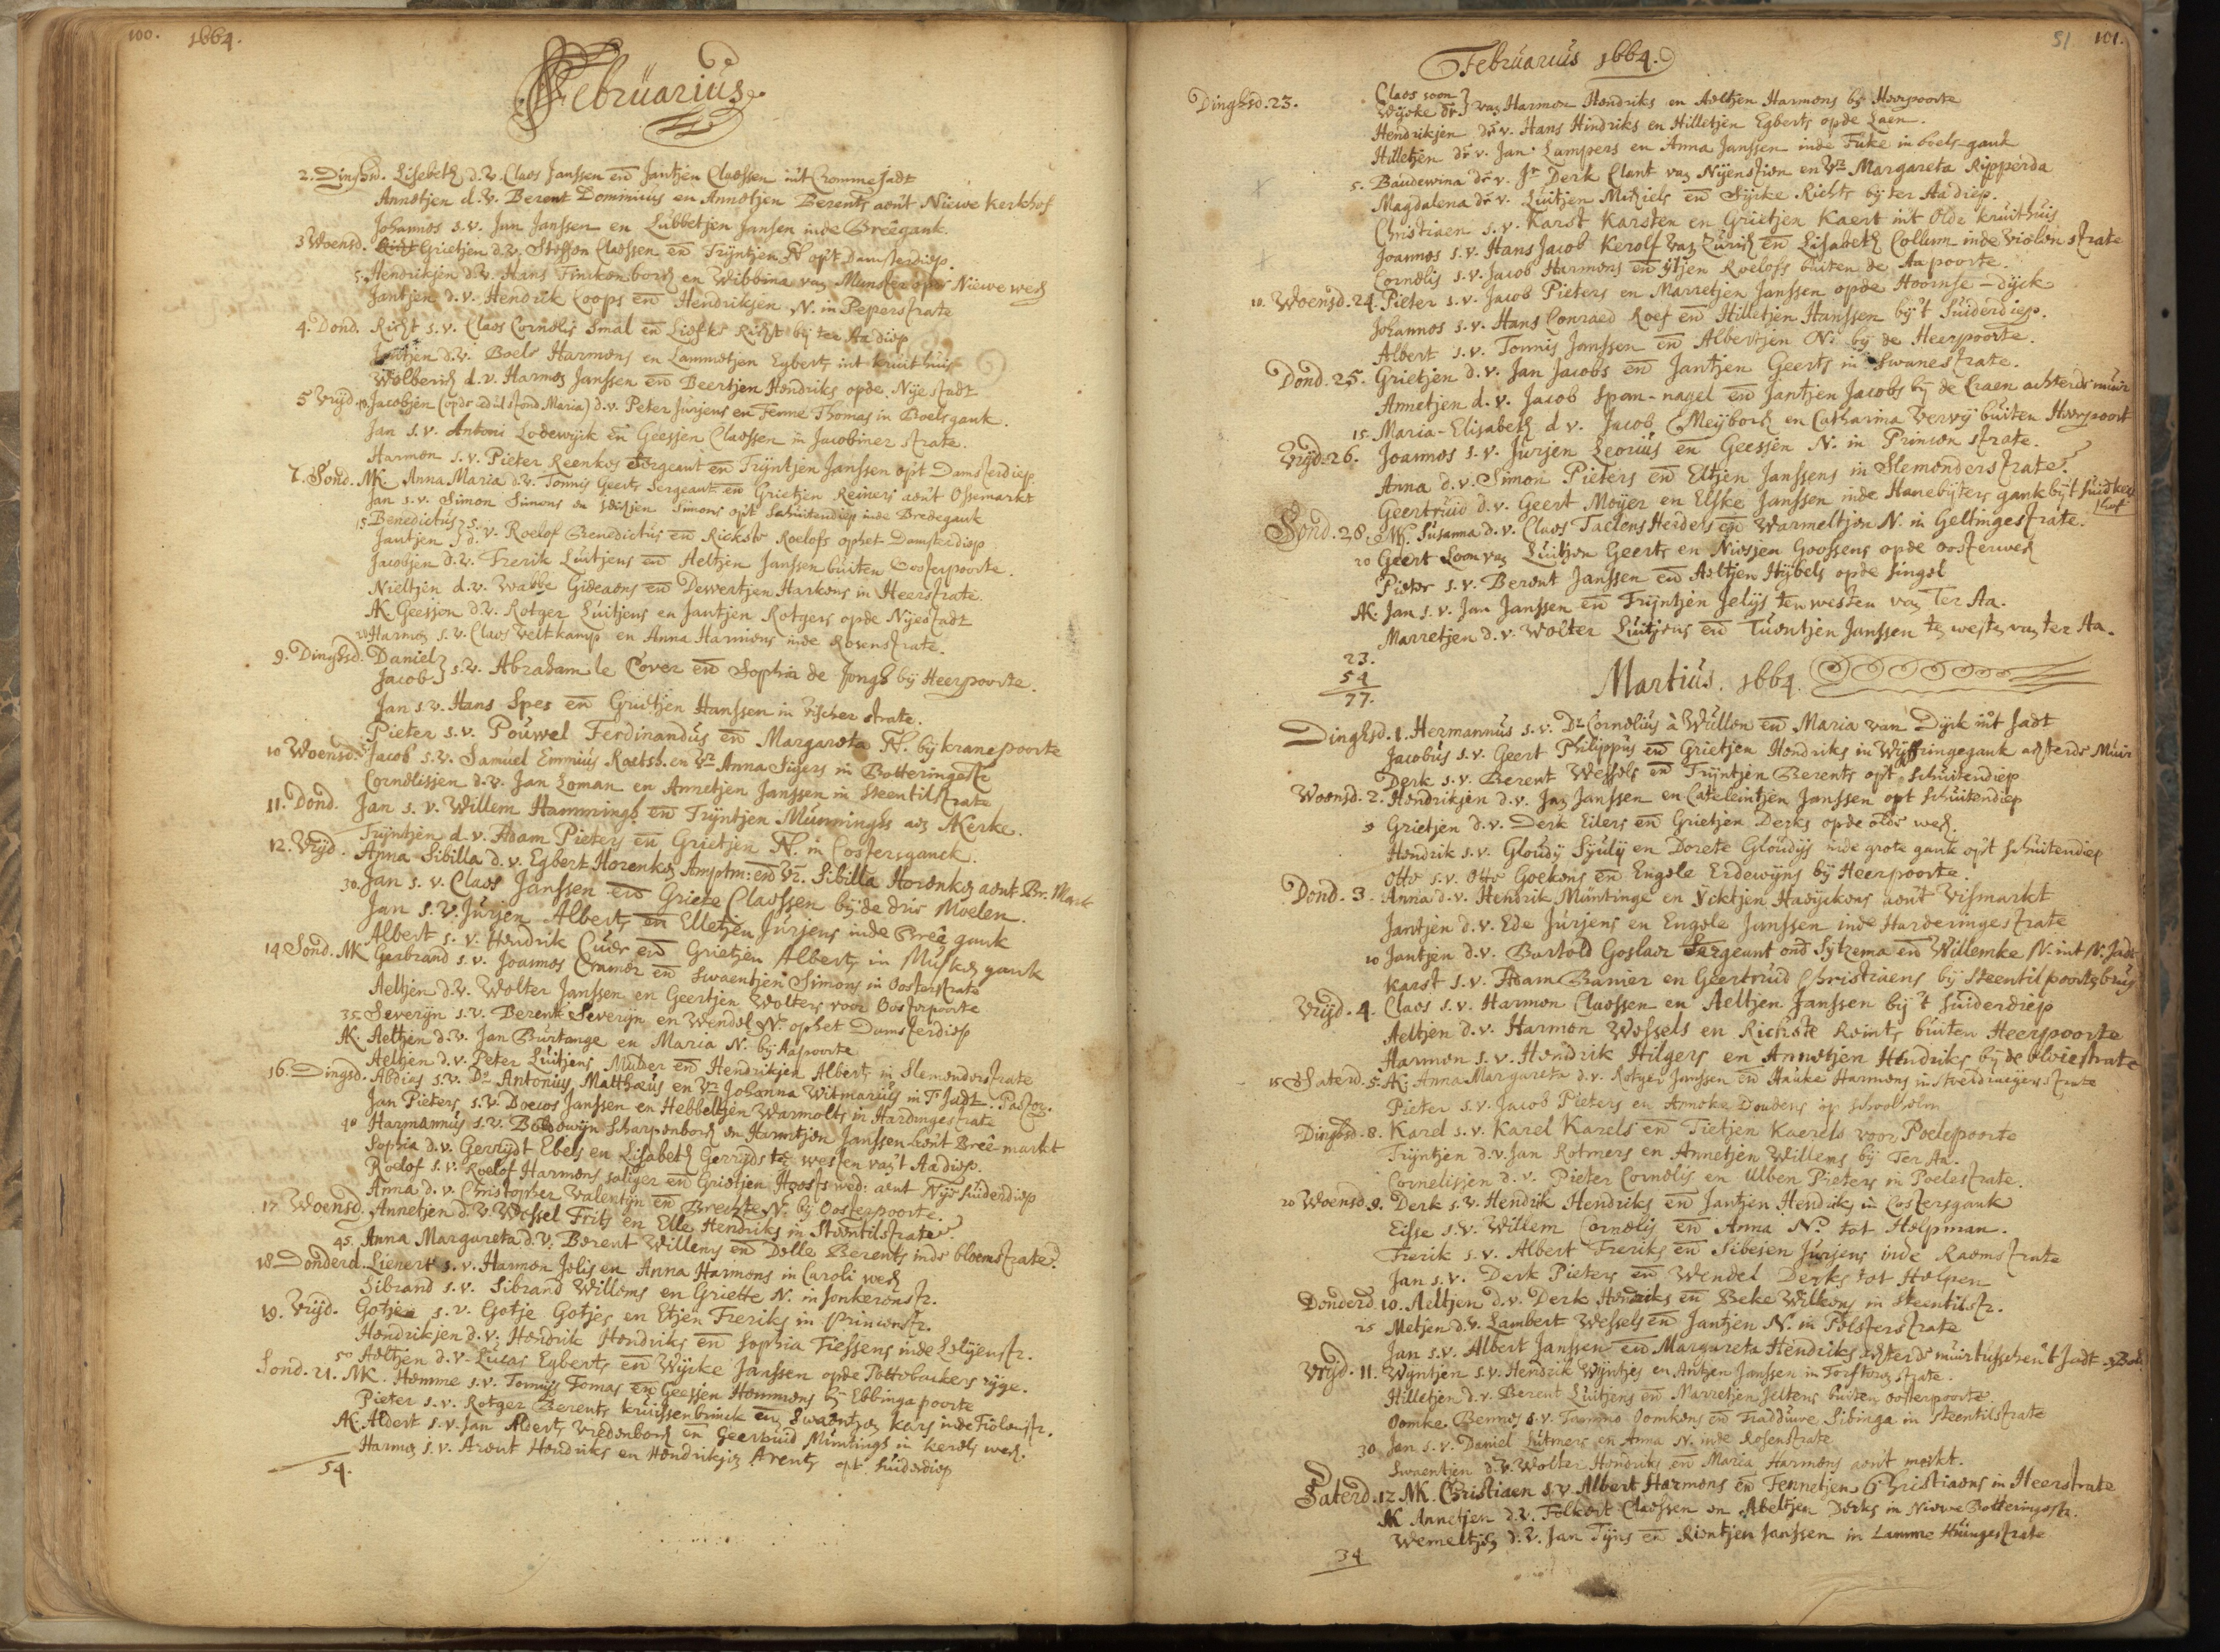 100. 1664.
Februarius.
2. Dinghsd. Lisebeth d.v. Claes Janssen en Jantjen Claessen int Cromme jadt
Annetjen d.v. Berent Dominius en Annetjen Berents aent Niewe kerkhof
Johannes s.v. Jan Janssen en Lubbetjen Jansen inde Breêgank.
3 Woensd. Grietjen d.v. Steffen Claessen en Trijntjen N. opt Damsterdiep.
5. Hendrikjen d.v. Hans Finkenborch en Wibbina van Munster opde Niewe wech
Jantjen d.v. Hendrik Coops en Hendriksen N. in Peperstrate
4. Dond. Richt s.v. Claes Cornelis Smal en Liefke Richt bij ter Aa diep
Jantjen d.v. Boele Harmens en Lammetjen Egberts int kruithuis
Wolberich d.v. Harmen Janssen en Beertjen Hendriks opde Nije stadt
5 Vrijd. 10. Jacobjen (opde edul stond Maria) d.v. Peter Jurjens en Femme Thomas in Boelegank.
Jan s.v. Antoni Lodewijck en Geesjen Claessen in Jacobiner strate.
Harmen s.v. Pieter Reenkes Sergeant en Trijntjen Janssen opt Damsterdiep.
7. Sond. NK. Anna Maria d.v. Tonnis Geerts Sergeant en Grietjen Reiners aent Ossemarkt
Jan s.v. Simon Simens en Idesjen Simons opt Schuitendiep inde Bredegank
15. Benedictus } s.
Jantjen } d. v. Roelof Benedictus en Rickste Roelofs ophet Damsterdiep
Jacobjen d.v. Frerik Luitjens en Heltjen Janssen buiten Oosterpoorte.
Nieltjen d.v. Wabbe Gideaens en Dewertjen Harkens in Heerstrate.
AK Geesjen d.v. Rotger Luitjens en Jantjen Rotgers opde Nijestadt
20 Harmen s.v. Claes Veltkamp en Anna Harmens inde Rosenstrate.
9. Dinghsd. Daniel
Jacob } s.v. Abraham le Cover en Sophia de Jongh bij Heerpoorte.
Jan s.v. Hans Spes en Grietjen Hanssen in Visscher strate.
Pieter s.v. Pouwel Ferdinandus en Margareta N. bij kranepoorte
10 Woensd. 25 Jacob s.v. Samuel Emmius Raetsh. en Vr Anna Sigers in Botteringestr
Cornelissen d.v. Jan Loman en Annetjen Janssen in Steentilstrate
11. Dond. Jan s.v. Willem Hammingh en Trijntjen Munninghs aen AKerke.
Trijntjen d.v. Adam Pieters en Grietjen N. in Costersganck.
12. Vrijd. Anna Sibilla d.v. Egbert Horenken Amptm: en Vr. Sibilla Horenken aent Br. Markt
30. Jan s.v. Claes Janssen en Grieke Claessen bijde drie Moelen.
Jan s.v. Jurjen Alberts en Elletjen Jurjens inde Breê gank
Albert s.v. Hendrik Cuer en Grietjen Alberts in Musken gank
14 Sond. NK Gerbrand s.v. Joannes Cramer en Swaentjen Simons in Oosterstrate
Aeltjen d.v. Wolter Janssen en Geertjen Wolters voor Oosterpoorte
35. Severijn s.v. Berent Severijn en Wendel N. ophet Damsterdiep
AK. Aeltjen d.v. Jan Burtange en Maria N. bij Aapoorte
Aeltjen d.v. Peter Luitjens Mulder en Hendrikjen Alberts in Slemonderstrate
16. Dingsd. Abdias s.v. Ds Antonius Matthaeus en Vr Johanna Witmarius in 't Jadt. Pastor.
Jan Pieters s.v. Doewes Janssen en Hebbeltjen Warmolts in Hardingestrate
40 Harmannus s.v. Boldowijn Scharpenborch en Harmtjen Janssen aent Breê-markt
Sophia d.v. Gerrijdt Ebels en Lisabeth Gerrijds te westen van 't Aadiep.
Roelof s.v. Roelof Harmens saliger en Grietjen Hoosts wed: aent Nije suiderdiep
Anna d.v. Christopher Valentijn en Brechte N. bij Oosterpoorte.
17 Woensd. Annetjen d.v. Wessel Frits en Elle Hendriks in Steentilstrate.
45. Anna Margareta d.v. Berent Willems en Delle Berents inde bloemstrate.
18. Donderd. Lienert s.v. Harmen Jelis en Anna Harmens in Caroli wech
Sibrand s.v. Sibrand Willems en Griette N. in Jonkerenstr.
19. Vrijd. Gotjen s.v. Gotje Gotjes en Etjen Freriks in Princenstr.
Hendrikjen d.v. Hendrik Hendriks en Sophia Tiessens inde Lelijenstr.
50 Aeltjen d.v. Lucas Egberts en Wijcke Janssen opde Pottebackers rijge.
Sond. 21. NK. Hemme s.v. Tomas Tomas en Geesjen Hemmens bij Ebbinga poorte
Pieter s.v. Rotger Berents kruissenbrinck en Swaentjen Kars inde Fiolenstr.
AK. Aldert s.v. Jan Alderts Vredenborch en Geertruid Muntings in kerels wech.
Harmen s.v. Arent Hendriks en Hendrikjen Arents opt suiderdiep
54.
51 101.
Februarius 1664.
Dinghsd. 23. Claes soon
Wijcke dr. } van Harmen Hendriks en Aeltjen Harmens bij Heerpoorte
Hendrikjen dr v. Hans Hindriks en Hilletjen Egberts opde Laen.
Hilletjen dr v. Jan Lampers en Anna Janssen inde Fuke in boels-gank
5. Baudewina dr v. Jr Derk Clant van Nijenstien en Vr Margareta Ripperda
Magdalena dr v. Luitjen Michiels en Sijcke Richts bij ter Aadiep.
Christiaen s.v. Karst Karsten en Grietjen Kaert int Olde kruithuis
Joannes s.v. Hans Jacob Kerolf van Zurich en Lisabeth Collum inde violen strate
Cornelis s.v. Jacob Harmens en Itjen Roelofs buiten de Aapoorte.
10. Woensd. 24. Pieter s.v. Jacob Pieters en Marretjen Janssen opde Hoornse-dijck
Johannes s.v. Hans Conraed Roef en Hilletjen Hanssen bij 't suiderdiep.
Albert s.v. Tonnis Janssen en Albertjen N. bij de Heerpoorte.
Dond. 25. Grietjen d.v. Jan Jacobs en Jantjen Geerts in Swanestrate.
Annetjen d.v. Jacob Span-nagel en Jantjen Jacobs bij de Craen achter de muir
15. Maria-Elisabeth d v. Jacob Meijborch en Catharina Verwij buiten Heerpoort
Vrijd. 26. Joannes s.v. Jurjen Leorius en Geessen N. in Princen strate.
Anna d.v. Simon Pieters en Eltjen Janssens in Slemonderstrate.
Geertruid d.v. Geert Moijer en Elske Janssen inde Hanebijters gank bij 't suidkerk
hof
Sond. 28. NK. Susanna d.v. Claes Taelens Heiders en Warmeltjen N. in Geltingestrate.
20 Geert soon van Luitjen Geerts en Niesjen Goossens opde oosterwech
Pieter s.v. Berent Janssen en Aeltjen Hijbels opde singel
AK. Jan s.v. Jan Janssen en Trijntjen Jelijs ten westen van Ter Aa.
Marretjen d.v. Wolter Luitjens en Tuentjen Janssen te westen van ter Aa.
23.
54
77.
Martius. 1664.
Dinghsd. 1. Hermannus s.v. Dr Cornelius à Wullen en Maria van Dijck int Jadt
Jacobus s.v. Geert Philippus en Grietjen Hendriks in Wijfringegank achter de Muir
Derk s.v. Berent Wessels en Trijntjen Berents opt Schuitendiep
Woensd. 2. Hendrikjen d.v. Jan Janssen en Cateleintjen Janssen opt Schuitendiep
5 Grietjen d.v. Derk Eilers en Grietjen Derks opde olde wech.
Hendrik s.v. Gloudy Sijulij en Dorete Gloudijs inde grote gank opt schuitendiep
Otto s.v. Otto Goekens en Engele Erdewijns bij Heerpoorte.
Dond. 3. Anna d.v. Hendrik Muntinge en Ycktjen Haeijckens aent Vismarkt
Jantjen d.v. Ede Jurjens en Engele Janssen inde Harderingestrate
10 Jantjen d.v. Bartold Goslavr Sergeant ond Sijtzema en Willemke N. int N. Jadt
Karst s.v. Adam Banier en Geertruid Christiaens bij Steentilpoortsbrug
Vrijd. 4. Claes s.v. Harmen Claessen en Aeltjen Janssen bij 't suiderdiep
Aeltjen d.v. Harmen Wessels en Richste Reints buiten Heerpoorte
Harmen s.v. Hendrik Hilgers en Annetjen Hendriks bij de oloiestrate
15 Saterd. 5. AK. Anna Margareta d.v. Rotger Janssen en Hauke Harmens in stoeldraeijerstrate
Pieter s.v. Jacob Pieters en Aneke Doudens op schoolholm
Dinghsd. 8. Karel s.v. Karel Karels en Tietjen Kaerels voor Poelepoorte
Trijntjen d.v. Jan Rotmers en Annetjen Willems bij Ter Aa.
Cornelisjen d.v. Pieter Cornelis en Ulben Pieters in Poelestrate.
20 Woensd. 9. Derk s.v. Hendrik Hendriks en Jantjen Hendriks in Costersgank
Eisse s.v. Willem Cornelis en Anna N. tot Helpman.
Frerik s.v. Albert Freriks en Sibesen Jurjens inde Raemstrate
Jan s.v. Derk Pieters en Wendel Derks tot Helpen
Donderd. 10. Aeltjen d.v. Derk Hendriks en Beke Wilkens in Steentilstr.
25 Metjen d.v. Lambert Wessels en Jantjen N. in Polsterstrate
Jan s.v. Albert Janssen en Margareta Hendriks achter de muir tusschen 't Jadt
Vrijd. 11. Wijntjen s.v. Hendrik Wijntjes en Antjen Janssen in Torftoren strate.
Hilletjen d.v. Berent Luitjens en Marretjen Jeltens buiten oosterpoorte
Oomke Bennes s.v. Tammo Oomkens en Fradduwe Sibinga in Steentilstrate
30 Jan s.v. Daniel Lutmers en Anna N. inde Rosenstrate
Swaentjen d.v. Wolter Hendriks en Maria Harmens aent merkt.
Saterd. 12. NK. Christiaen s.v. Albert Harmens en Fennetjen Christiaens in Heerstrate
AK Annetjen d.v. Folkert Claessen en Abeltjen Derks in Niewe Botteringestr.
Wemeltjen d.v. Jan Tijns en Rientjen Janssen in Lamme Huingestrate
34